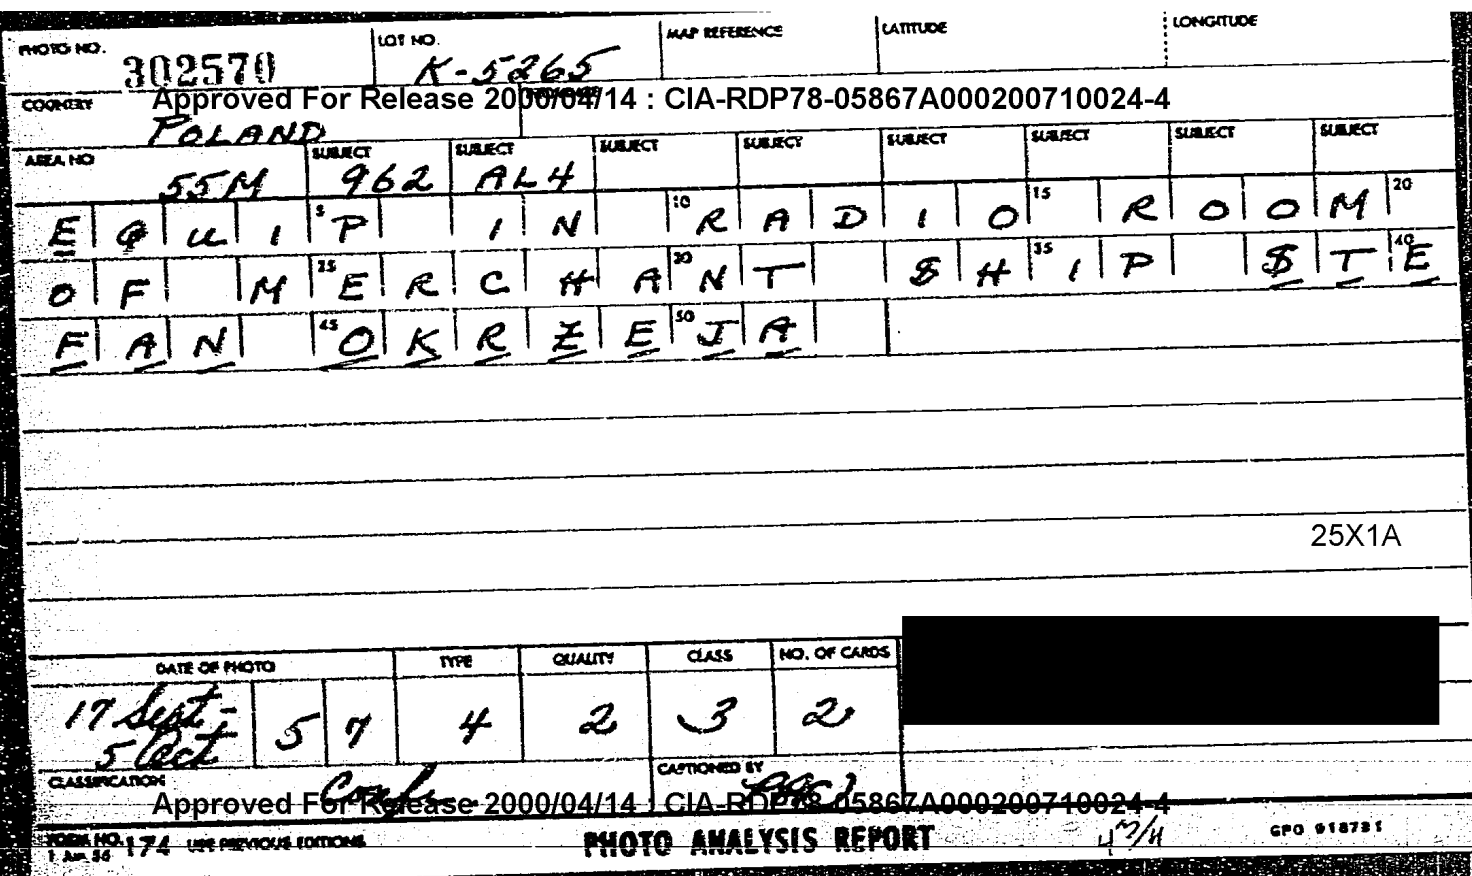 PHOTO NO. 302570 LOT NO. K-5265 MAP REFERENCE LATITUDE LONGITUDE
Approved For Release 2000/04/14 : CIA-RDP78-05867A000200710024-4
COUNTRY POLAND
AREA NO 55M SUBJECT 962 SUBJECT AL4 SUBJECT SUBJECT SUBJECT SUBJECT SUBJECT SUBJECT
EQUIP IN RADIO ROOM
5 10 15 20
OF MERCHANT SHIP STE
25 30 35 40
FAN OKRZEJA
45 50
25X1A
DATE OF PHOTO TYPE QUALITY CLASS NO. OF CARDS
17 Sept - 5 Oct 57 4 2 3 2
CLASSIFICATION Conf. CAPTIONED BY
Approved For Release 2000/04/14 : CIA-RDP78-05867A000200710024-4
FORM NO. 174 USE PREVIOUS EDITIONS PHOTO ANALYSIS REPORT GPO 918781